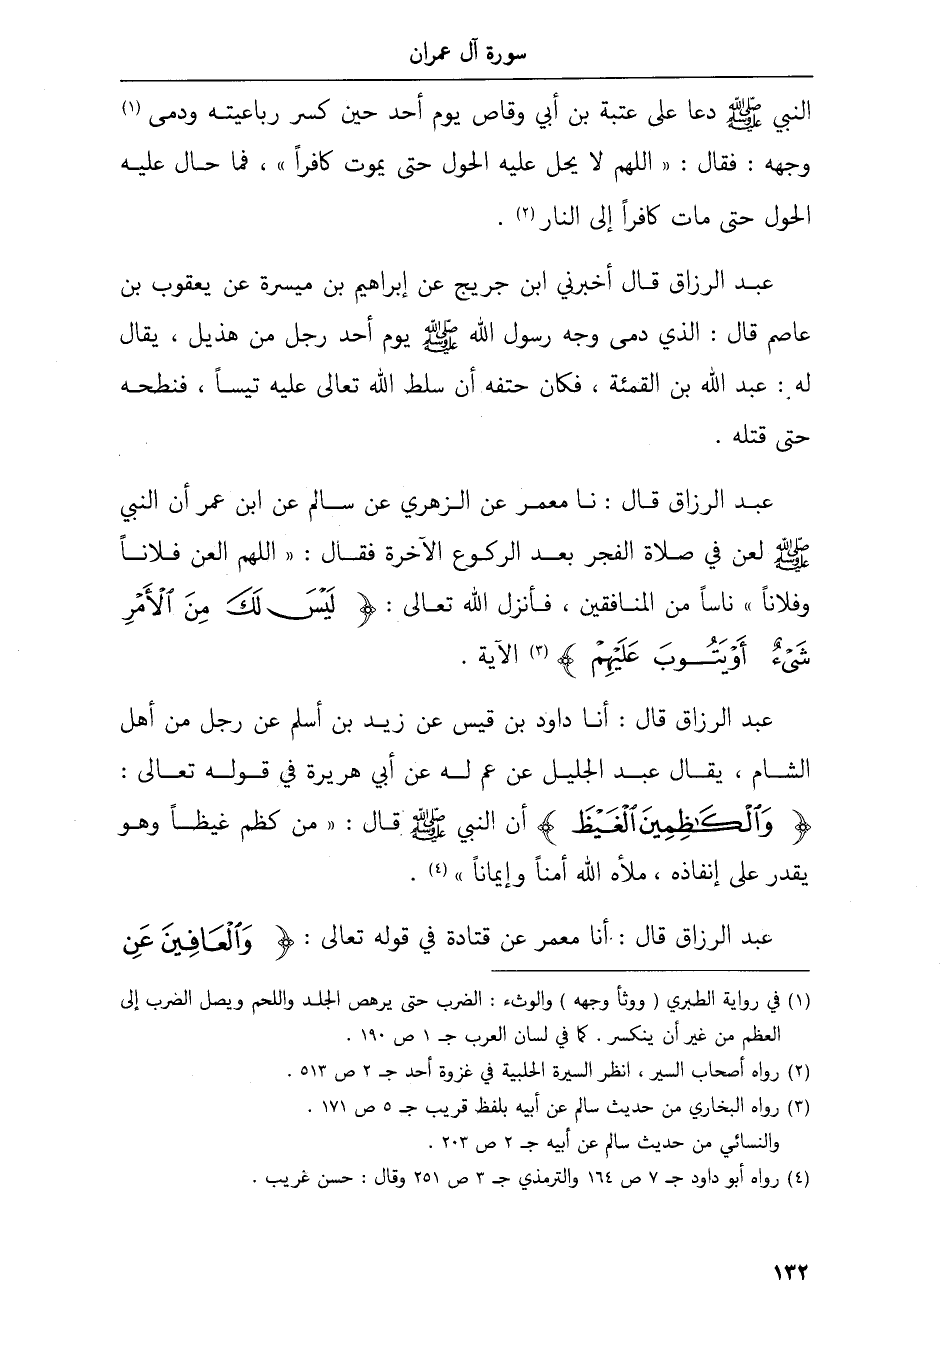 سورة آل عمران
النبي ﷺ دعا على عتبة بن أبي وقاص يوم أحد حين كسر رباعيته ودمى (١)
وجهه : فقال : « اللهم لا يحل عليه الحول حتى يموت كافراً » ، فما حال عليه
الحول حتى مات كافراً إلى النار (٢) .
عبد الرزاق قال أخبرني ابن جريج عن إبراهيم بن ميسرة عن يعقوب بن
عاصم قال : الذي دمى وجه رسول الله ﷺ يوم أحد رجل من هذيل ، يقال
له : عبد الله بن القمئة ، فكان حتفه أن سلط الله تعالى عليه تيساً ، فنطحه
حتى قتله .
عبد الرزاق قال : نا معمر عن الزهري عن سالم عن ابن عمر أن النبي
ﷺ لعن في صلاة الفجر بعد الركوع الآخرة فقال : « اللهم العن فلاناً
وفلاناً » ناساً من المنافقين ، فأنزل الله تعالى : ﴿ لَيْسَ لَكَ مِنَ ٱلْأَمْرِ
شَىْءٌ أَوْ يَتُوبَ عَلَيْهِمْ ﴾ (٣) الآية .
عبد الرزاق قال : أنا داود بن قيس عن زيد بن أسلم عن رجل من أهل
الشام ، يقال عبد الجليل عن عم له عن أبي هريرة في قوله تعالى :
﴿ وَٱلْكَٰظِمِينَ ٱلْغَيْظَ ﴾ أن النبي ﷺ قال : « من كظم غيظاً وهو
يقدر على إنفاذه ، ملأه الله أمناً وإيماناً » (٤) .
عبد الرزاق قال : أنا معمر عن قتادة في قوله تعالى : ﴿ وَٱلْعَافِينَ عَنِ
(١) في رواية الطبري ( ووثأ وجهه ) والوثء : الضرب حتى يرهص الجلد واللحم ويصل الضرب إلى
العظم من غير أن ينكسر . كما في لسان العرب جـ ١ ص ١٩٠ .
(٢) رواه أصحاب السير ، انظر السيرة الحلبية في غزوة أحد جـ ٢ ص ٥١٣ .
(٣) رواه البخاري من حديث سالم عن أبيه بلفظ قريب جـ ٥ ص ١٧١ .
والنسائي من حديث سالم عن أبيه جـ ٢ ص ٢٠٣ .
(٤) رواه أبو داود جـ ٧ ص ١٦٤ والترمذي جـ ٣ ص ٢٥١ وقال : حسن غريب .
١٣٢